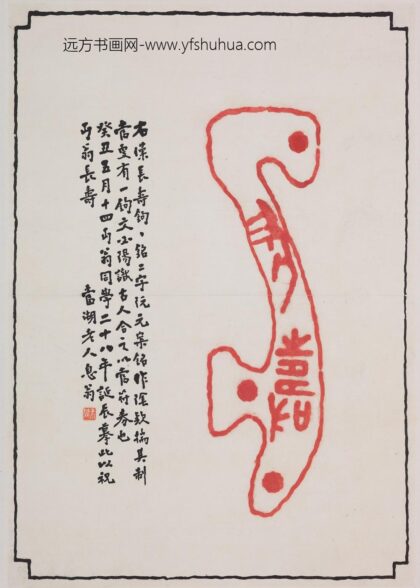 远方书画网-www.yfshuhua.com
長
壽
右漢長壽鉤、銘二字阮元案銘作陰款揣其制
當更有一鉤文必陽識古人合之以當符券也
癸丑五月十四丏翁同學二十八年誕辰摹此以祝
丏翁長壽
當湖老人息翁